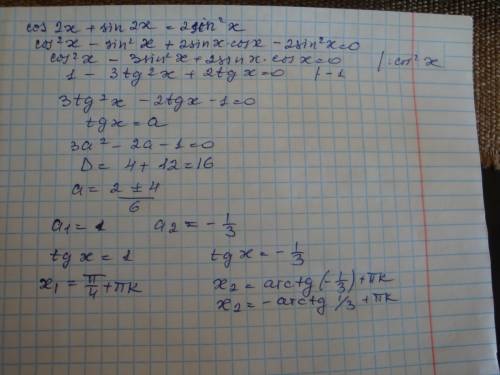 cos 2x + sin 2x = 2sin²x
cos²x - sin²x + 2sinx·cosx - 2sin²x=0
cos²x - 3sin²x + 2sinx·cosx=0 /:cos²x
1 - 3tg²x + 2tgx=0 /·-1
3tg²x - 2tgx - 1=0
tgx = a
3a² - 2a - 1=0
D = 4+12=16
a = (2 ± 4)/6
a₁ = 1 a₂ = - 1/3
tgx = 1 tgx = - 1/3
x₁ = π/4 + πk x₂ = arctg(-1/3) + πk
x₂ = -arctg 1/3 + πk